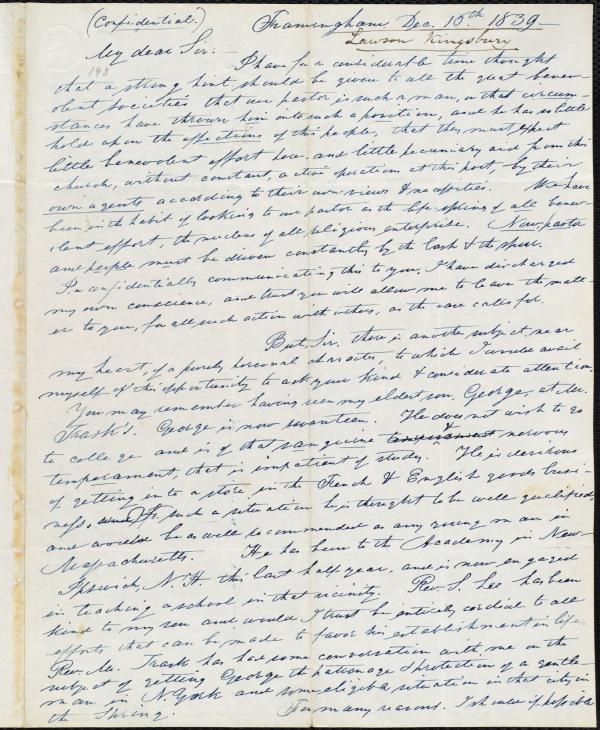 (Confidential.)
Framingham Dec. 15th 1839
Lawson Kingsbury
My dear Sir:
193
I have for a considerable time thought
that a strong hint should be given to all the great benev-
olent societies that our pastor is such a man, or that circum-
stances have thrown him into such a position, and he has so little
hold upon the affections of this people, that they must expect
little benevolent effort here, and little pecuniary aid from this
church, without constant, active operations at this post, by their
own agents according to their own views & necessities. We have
been in the habit of looking to our pastor as the life-spring of all benev-
olent effort, the nucleus of all religious enterprise. Now, pastor
and people must be driven constantly by the lash & the spur.
In confidentially communicating this to you, I have discharged
my own conscience, and trust you will allow me to leave the matt-
er to you, for all such action with others, as the case calls for.
But, Sir, there is another subject, near
my heart, of a purely personal character, to which I would avail
myself of this opportunity to ask your kind & considerate attention.
You may remember having seen my eldest son, George, at Mr.
Trask's. George is now seventeen. He does not wish to go
to college and is of that sanguine & nervous
temperament, that is impatient of study. He is desirous
of getting into a store, in the French & English goods busi-
ness. For such a situation he is thought to be well qualified,
and would be as well recommended as any young man in
Massachusetts. He has been to the Academy in New-
Ipswich, N.H. this last half year, and is now engaged
in teaching a school in that vicinity. Rev. S. Lee has been
kind to my son and would I trust be entirely cordial to all
efforts that can be made to favor his establishment in life.
Rev. Mr. Trask has had some conversation with me on the
subject of getting George the patronage & protection of a gentle-
man in N. York and some eligible situation in that city in
the Spring. For many reasons, I should if possible